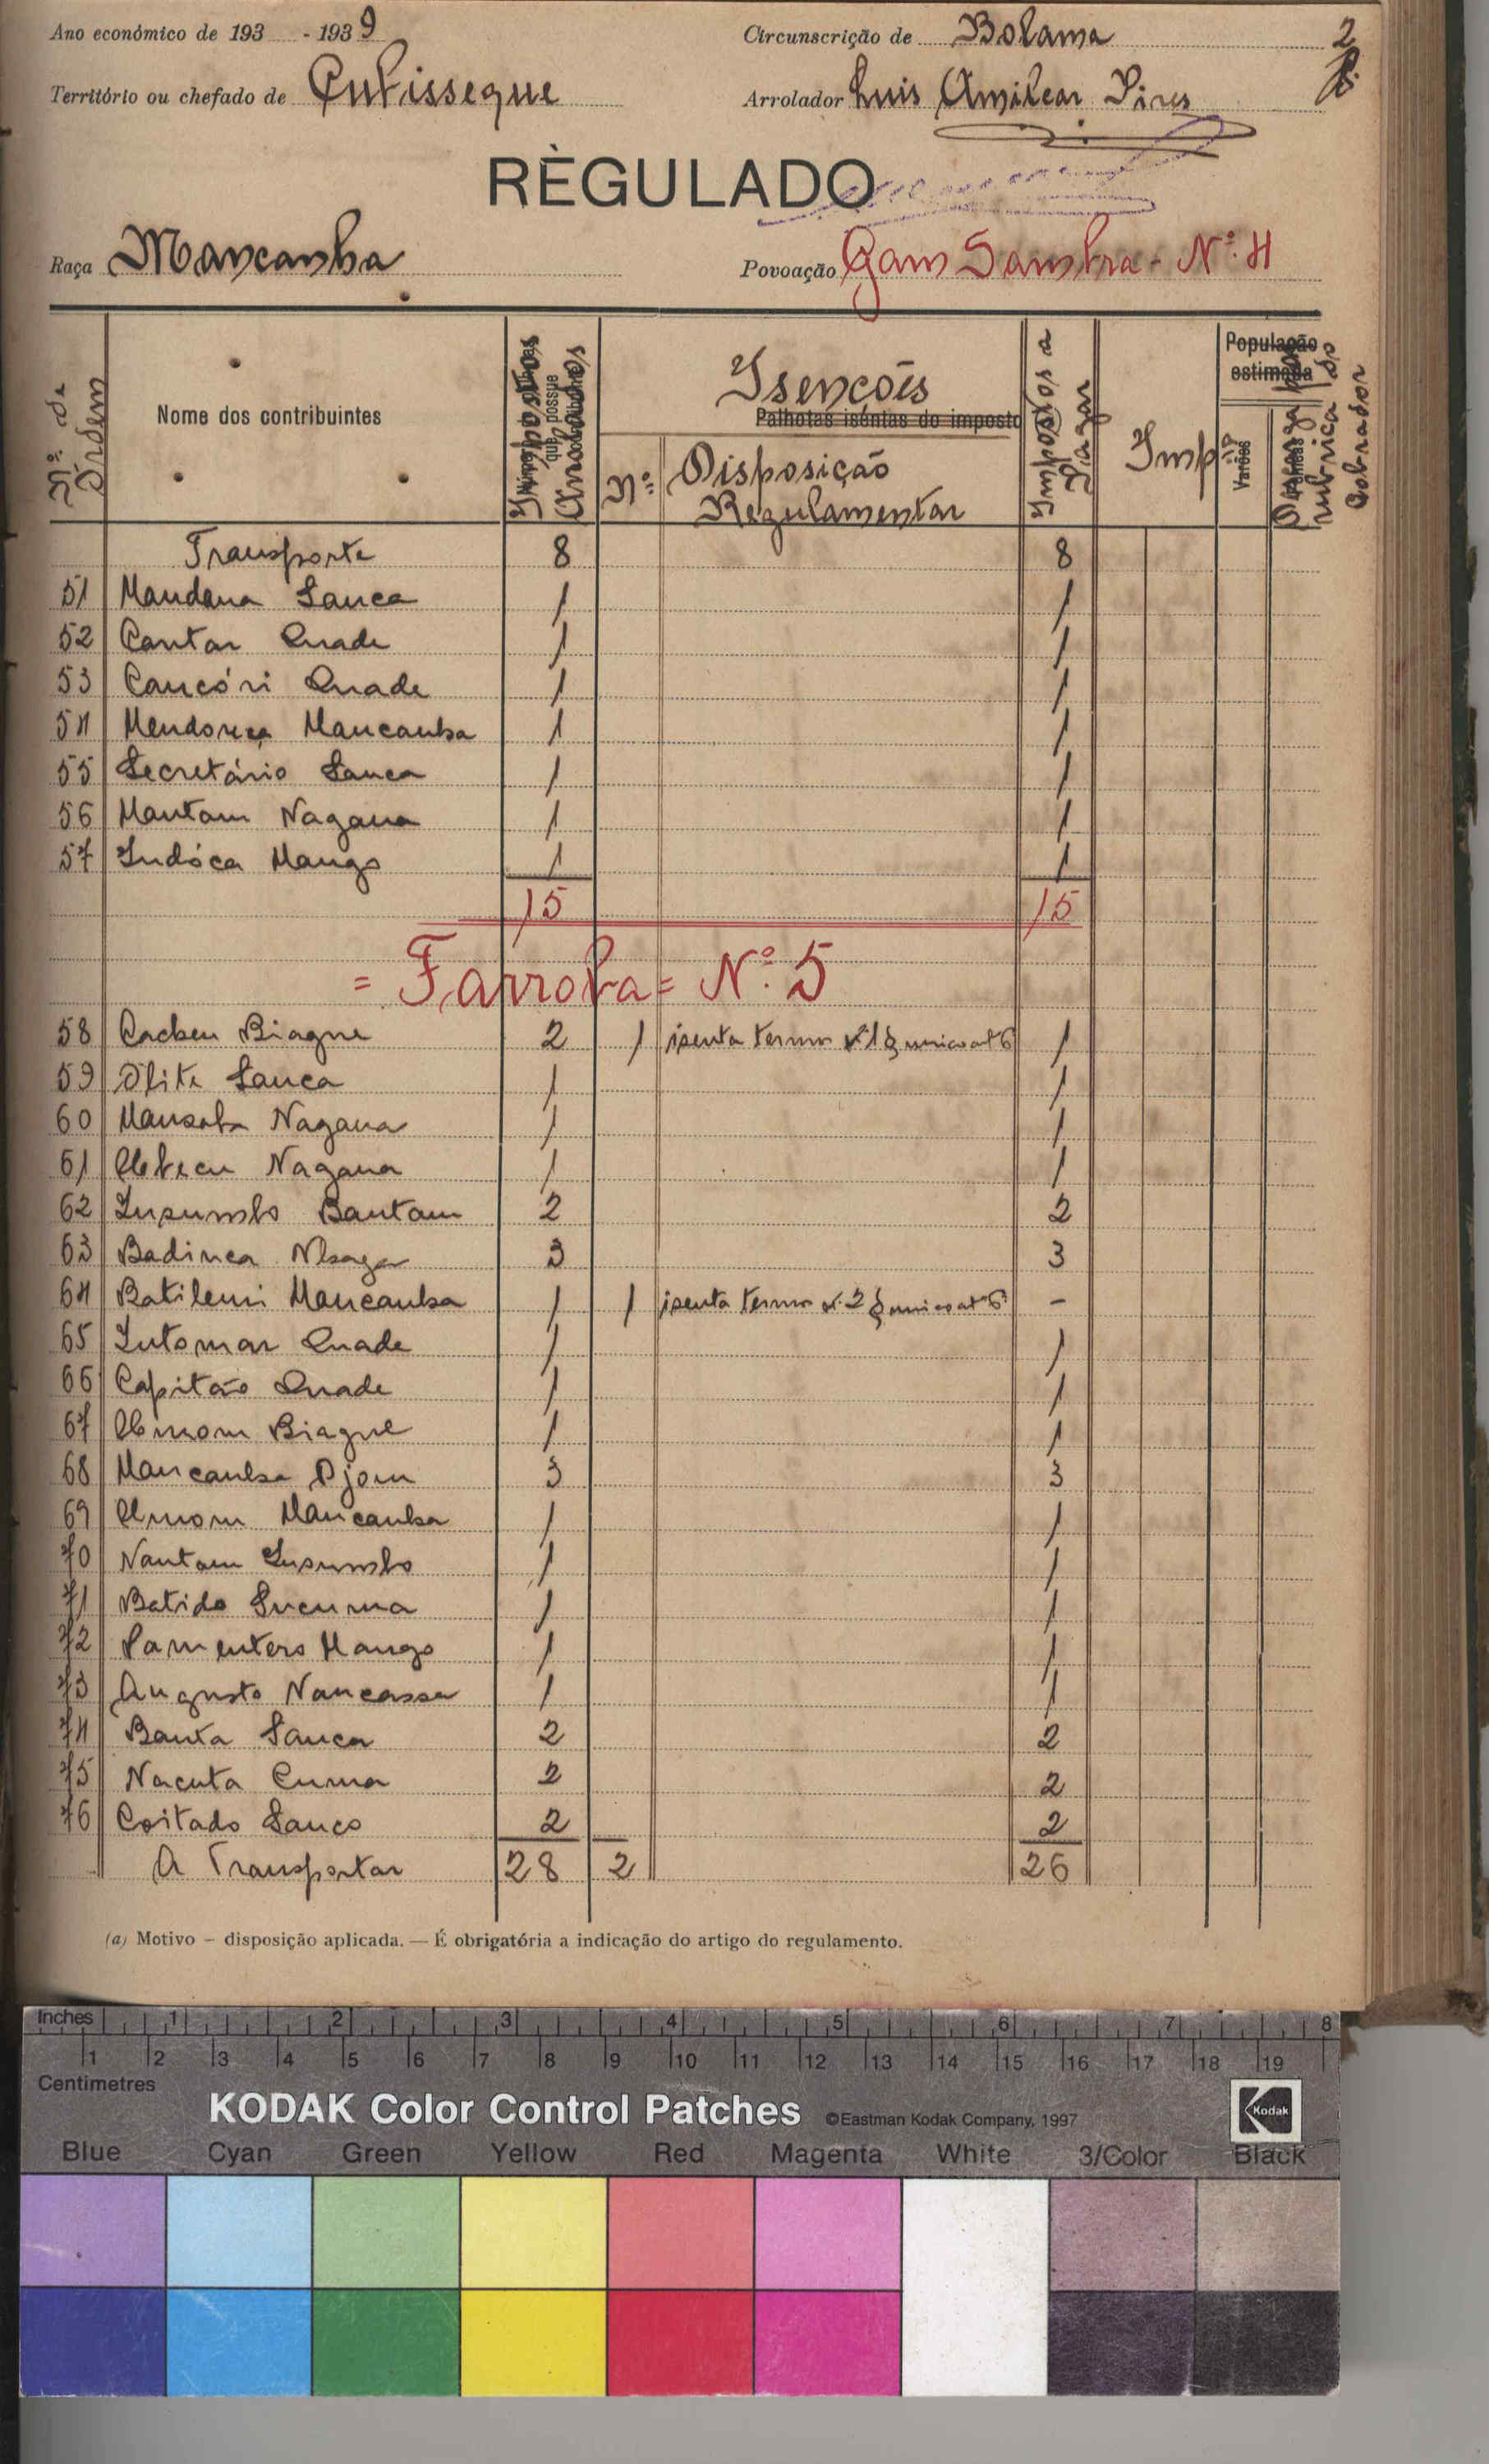 Ano económico de 193 - 1939
Circunscrição de Bolama
2
Território ou chefado de
Arrolador Luis Amilcar Pires
RÈGULADO
Raça Mancanha
Povoação Gam Sambra - Nº. 4
Nº de Ordem
Nome dos contribuintes
Impostos Arrolados
Isencoĩs
Palhotas isentas do imposto
Nº
Disposição Regulamentar
Impostos a Pagar
Imp
População estimada
Varões
rubrica do cobrador
Transporte 8 8
51 Mandana Sanca 1 1
52 Cantar Quade 1 1
53 Cancóri Quade 1 1
54 Mendonça Mancanha 1 1
55 Secretário Sanca 1 1
56 Mantam Nagana 1 1
57 Indóca Mango 1 1
15 15
= Farroba = Nº. 5
58 Cacheu Biague 2 1 isenta termo nº 1 § unico artº 6 1
59 Olite Sanca 1 1
60 Nagana 1 1
61 Nagana 1 1
62 Insumbo Bantam 2 2
63 Badinca 3 3
64 Batileni Mancanha 1 1 isenta termo nº 2 § unico artº 6 -
65 Intomar Quade 1 1
66 Capitão Quade 1 1
67 Biague 1 1
68 Mancanha Djom 3 3
69 Mancanha 1 1
70 Nantam Insumbo 1 1
71 Batido 1 1
72 Mango 1 1
73 Augusto Nancassa 1 1
74 Banta Sanca 2 2
75 Nacuta 2 2
76 Coitado Sanco 2 2
A Transportar 28 2 26
(a) Motivo – disposição aplicada. — É obrigatória a indicação do artigo do regulamento.
Inches 1 2 3 4 5 6 7 8
1 2 3 4 5 6 7 8 9 10 11 12 13 14 15 16 17 18 19
Centimetres
KODAK Color Control Patches ©Eastman Kodak Company, 1997 Kodak
Blue Cyan Green Yellow Red Magenta White 3/Color Black